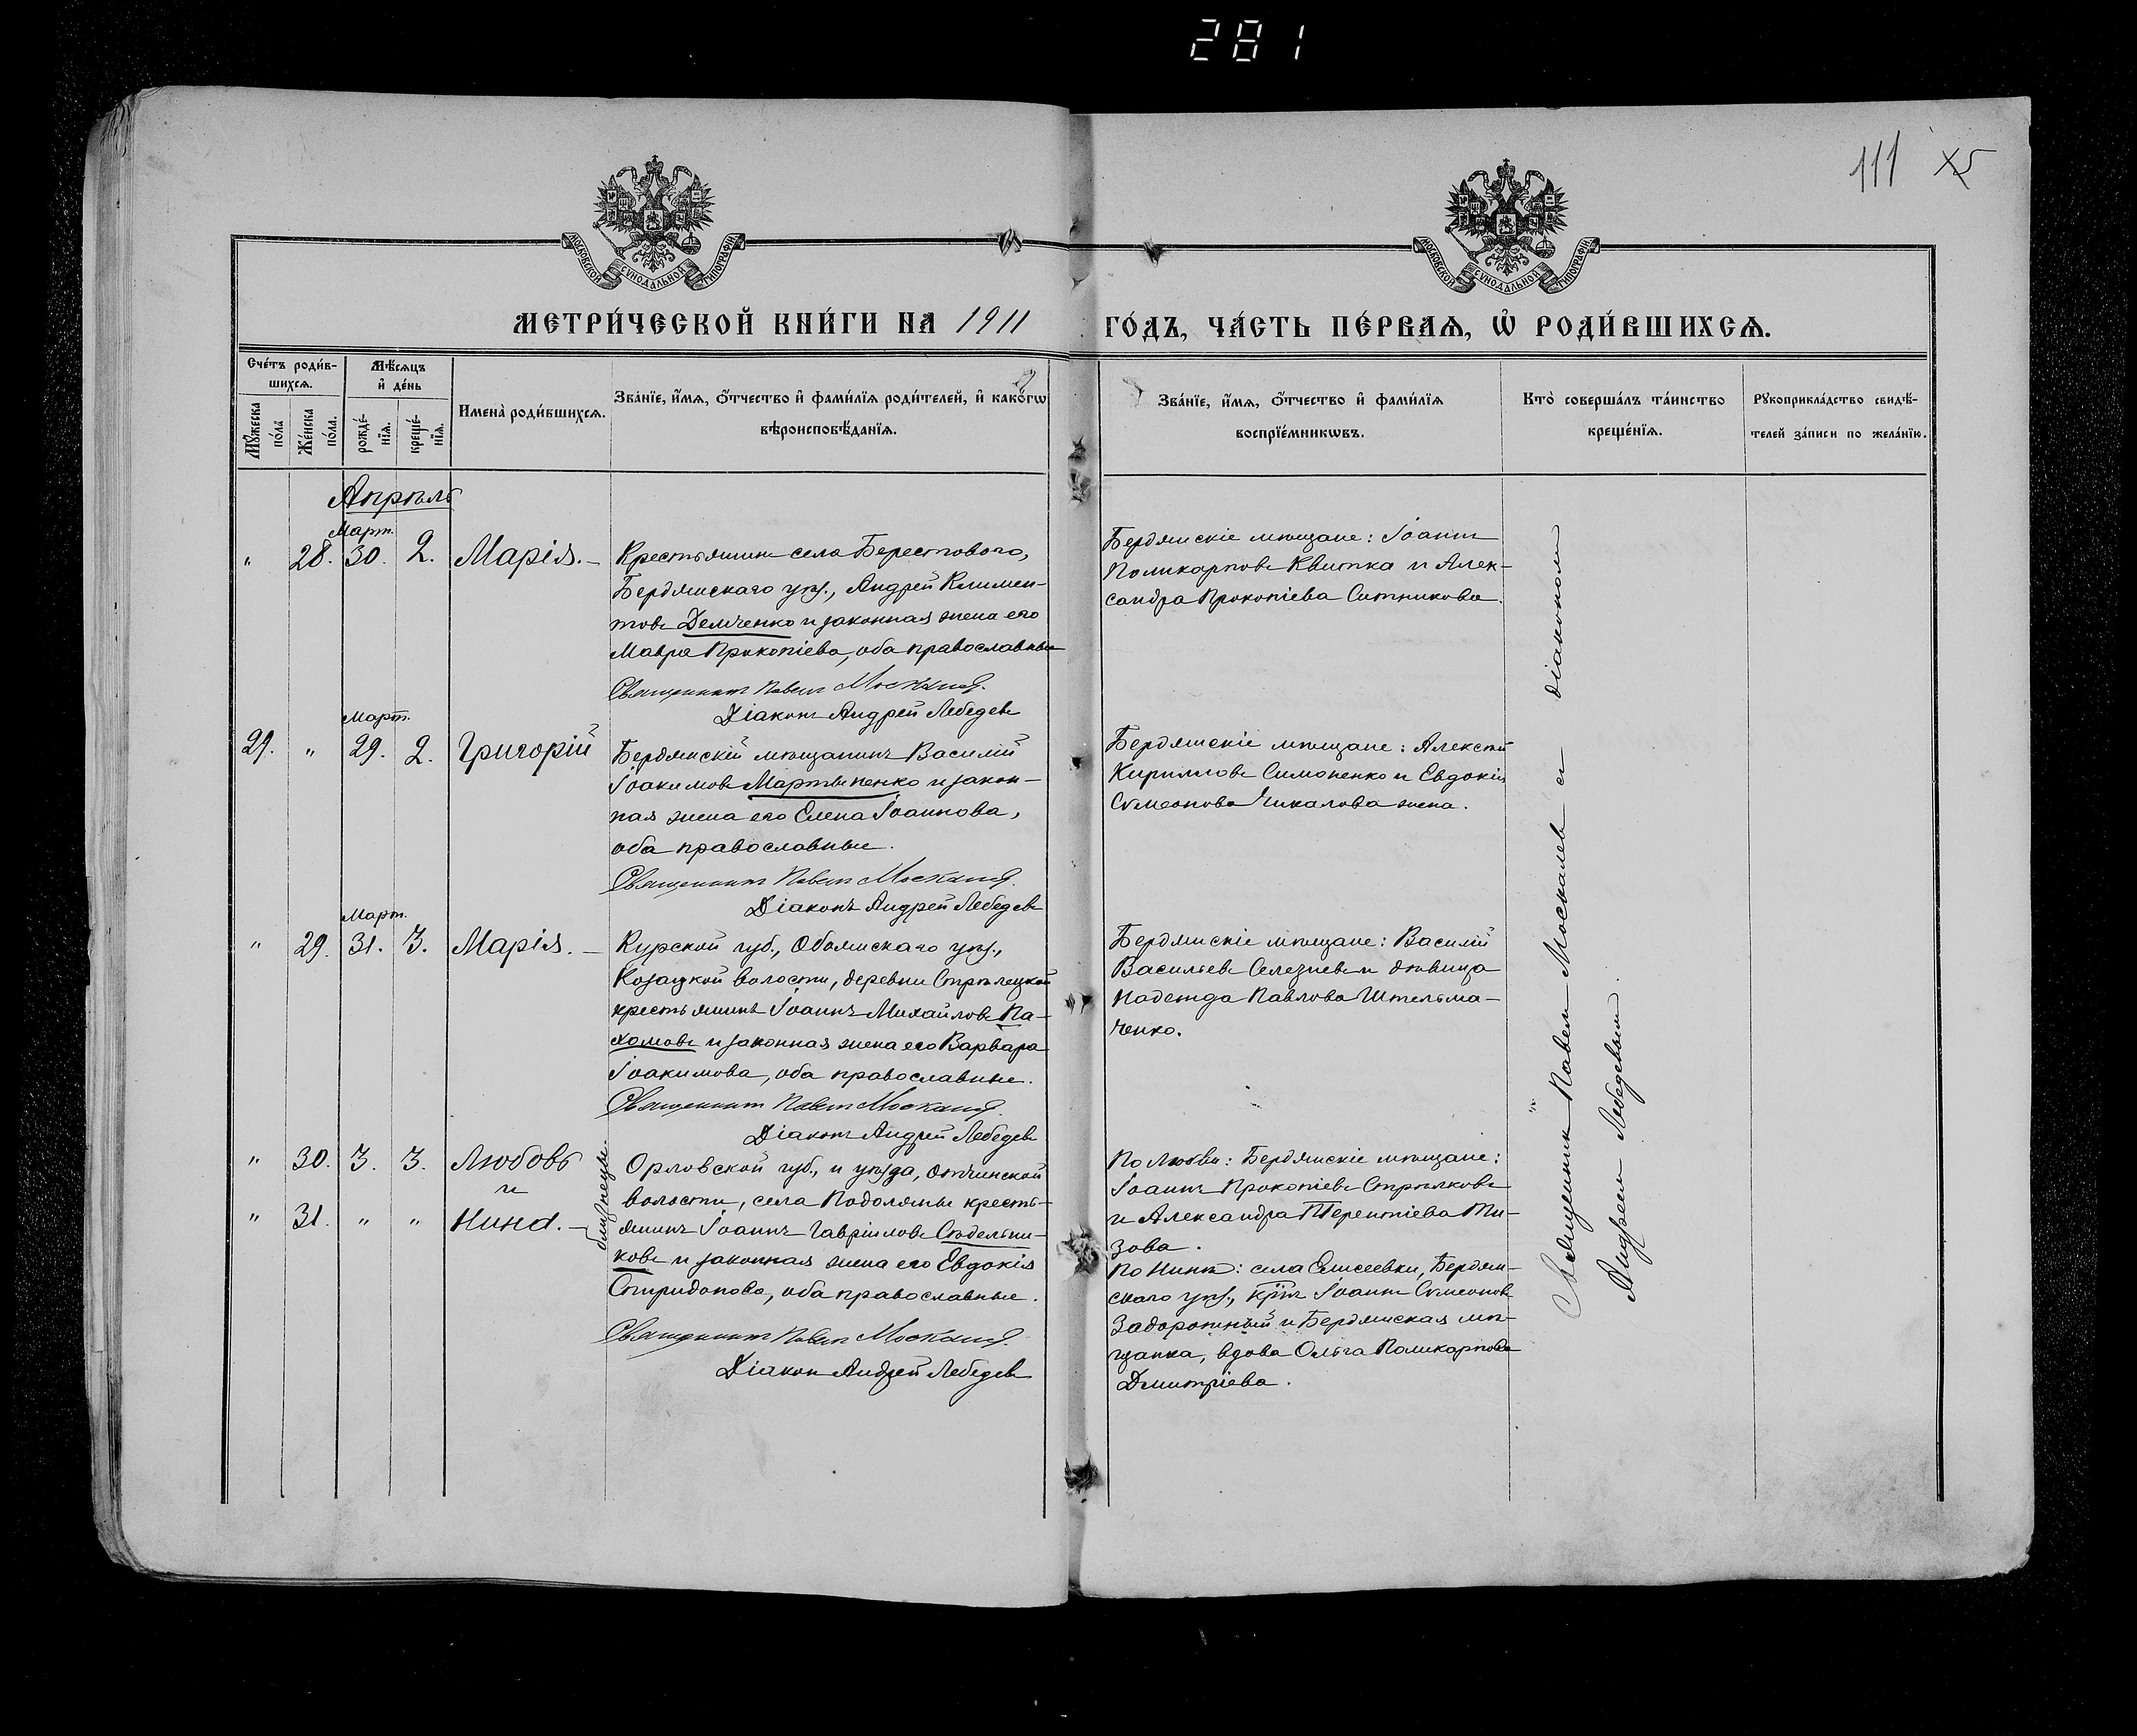 281
111
МОСКОВСКОЙ СѴНОДАЛЬНОЙ ТИПОГРАФІИ
МОСКОВСКОЙ СѴНОДАЛЬНОЙ ТИПОГРАФІИ
МЕТРИ́ЧЕСКОЙ КНИ́ГИ НА 1911 ГО́ДЪ, ЧА́СТЬ ПЕ́РВАЯ, Ѡ҆ РОДИ́ВШИХСѦ.
Сче́тъ роди́в-
шихсѧ.
Мꙋ́жеска по́ла
Же́нска по́ла.
Мѣ́сѧцъ
и҆ де́нь
рожде́-
нїѧ.
креще́-
нїѧ.
И҆мена̀ роди́вшихсѧ.
Зва́нїе, и҆́мѧ, ѻ҆́тчество и҆ фами́лїѧ роди́телей, и҆ како́гѡ
вѣроисповѣ́данїѧ.
Зва́нїе, и҆́мѧ, ѻ҆́тчество и҆ фами́лїѧ
воспрїе́мникѡвъ.
Кто̀ соверша́лъ та́инство
креще́нїѧ.
Рꙋкоприкла́дство свидѣ́-
телей за́писи по жела́нїю.
Апрѣль
Март.
" 28. 30. 2. Марія. –
Крестьянинъ села Берестового,
Бердянскаго уѣз., Андрей Климен-
товъ Демченко и законная жена его
Мавра Прокопіева, оба православные
Священникъ Павелъ Москалев.
Діаконъ Андрей Лебедевъ
Бердянскіе мѣщане: Іоаннъ
Поликарповъ Квитка и Алек-
сандра Прокопіева Ситникова.
Март.
29. " 29. 2. Григорій
Бердянскій мѣщанинъ Василій
Іоакимовъ Мартыненко и закон-
ная жена его Елена Іоаннова,
оба православные.
Священникъ Павелъ Москалев.
Діаконъ Андрей Лебедевъ
Бердянскіе мѣщане: Алексѣй
Кирилловъ Симоненко и Евдокія
Сѵмеонова Чикалова жена.
Март.
" 29. 31. 3. Марія. –
Курской губ., Обоянскаго уѣз.,
Козацкой волости, деревни Стрѣлецкой
крестьянинъ Іоаннъ Михайловъ Па-
хомовъ и законная жена его Варвара
Іоакимова, оба православные.
Священникъ Павелъ Москалев.
Діаконъ Андрей Лебедевъ
Бердянскіе мѣщане: Василій
Васильевъ Селезневъ и дѣвица
Надежда Павлова Штельма-
ченко.
" 30. 3. 3. Любовь
и
" 31. " " Нина. –
близнецы.
Орловской губ., и уѣзда,
волости, села Подоляны кресть-
янинъ Іоаннъ Гавріиловъ Сѣдельни-
ковъ и законная жена его Евдокія
Спиридонова, оба православные.
Священникъ Павелъ Москалев.
Діаконъ Андрей Лебедевъ
По Любви: Бердянскіе мѣщане:
Іоаннъ Прокопіевъ Стрѣлковъ
и Александра Терентіева Ти-
зова.
По Нинѣ: села Елисеевки, Бердян-
скаго уѣз., кр̃нъ Іоаннъ Сѵмеоновъ
Задорожный и Бердянская мѣ-
щанка, вдова Ольга Поликарпова
Дмитріева.
Священник Павел Москалев с діаконом
Андреем Лебедевым.